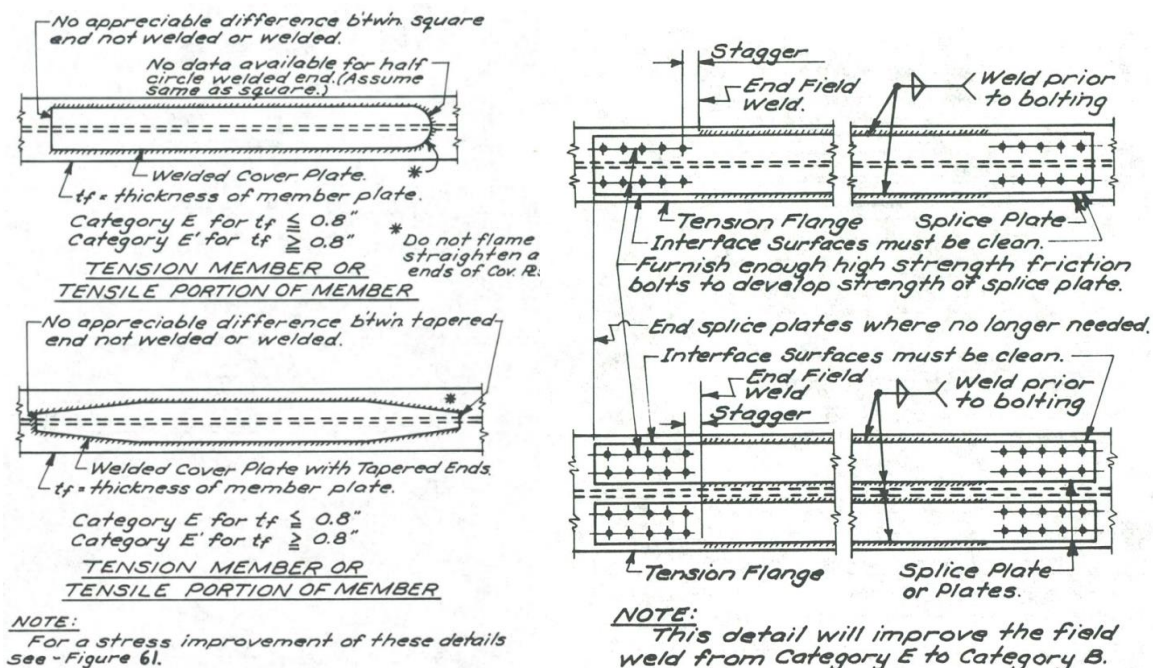 No appreciable difference b'twn. square
end not welded or welded.
No data available for half
circle welded end. (Assume
same as square.)
Welded Cover Plate.
*
tf = thickness of member plate.
Category E for tf ≦ 0.8"
Category E' for tf ≧ 0.8"
* Do not flame
straighten a
ends of Cov. PL
TENSION MEMBER OR
TENSILE PORTION OF MEMBER
No appreciable difference b'twn. tapered
end not welded or welded.
*
Welded Cover Plate with Tapered Ends.
tf = thickness of member plate.
Category E for tf ≦ 0.8"
Category E' for tf ≧ 0.8"
TENSION MEMBER OR
TENSILE PORTION OF MEMBER
NOTE:
For a stress improvement of these details
see - Figure 61.
Stagger
End Field
Weld.
Weld prior
to bolting
Tension Flange
Splice Plate
Interface Surfaces must be clean.
Furnish enough high strength friction
bolts to develop strength of splice plate.
End splice plates where no longer needed.
Interface Surfaces must be clean.
End Field
Weld
Stagger
Weld prior
to bolting
Tension Flange
Splice Plate
or Plates.
NOTE:
This detail will improve the field
weld from Category E to Category B.